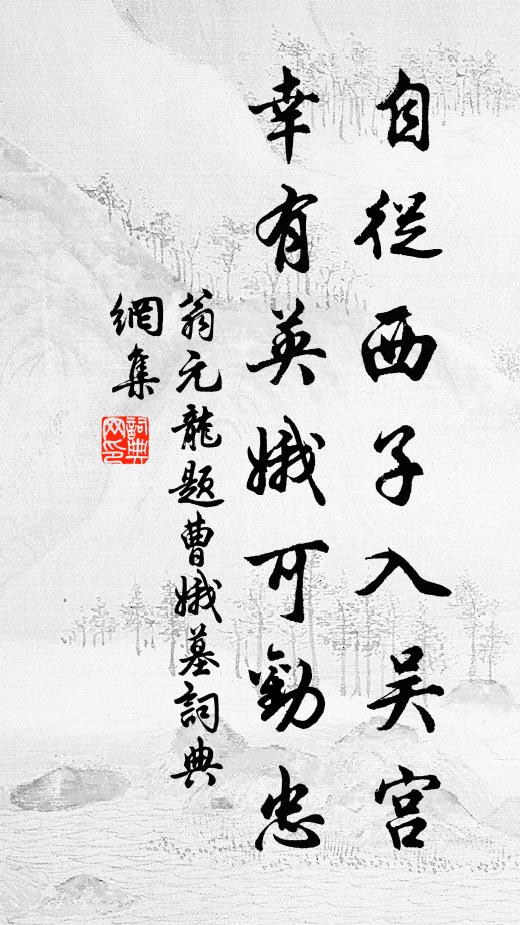 自從西子入吳宮
幸有英娥可勸忠
翁元龍題曹娥墓詞典
網集
詞典
网印